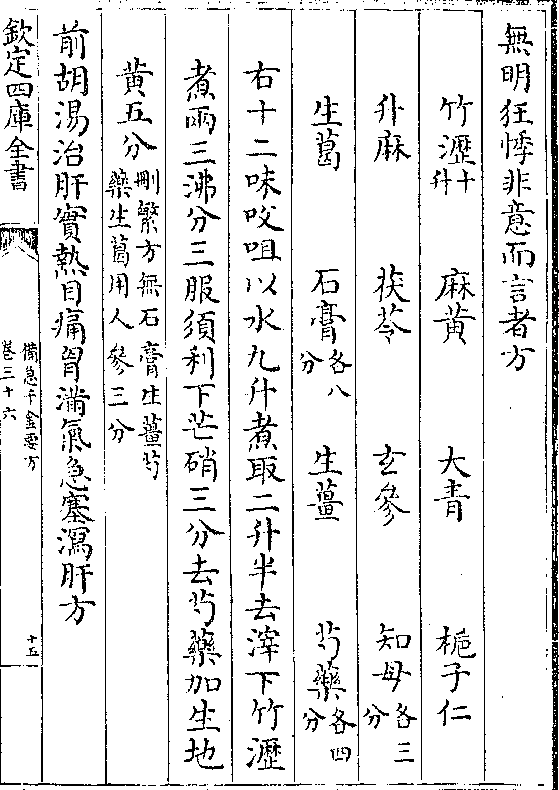 無明狂悸非意而言者方
竹瀝十升 麻黄 大青 梔子仁
升麻 茯苓 玄參 知母各三分
生葛 石膏各八分 生薑 芍藥各四分
右十二味㕮咀以水九升煮取二升半去滓下竹瀝
煮兩三沸分三服須利下芒硝三分去芍藥加生地
黄五分刪繁方無石膏生薑芍藥生葛用人參三分
前胡湯治肝實熱目痛胷滿氣急塞瀉肝方
欽定四庫全書
備急千金要方
卷三十六
十五